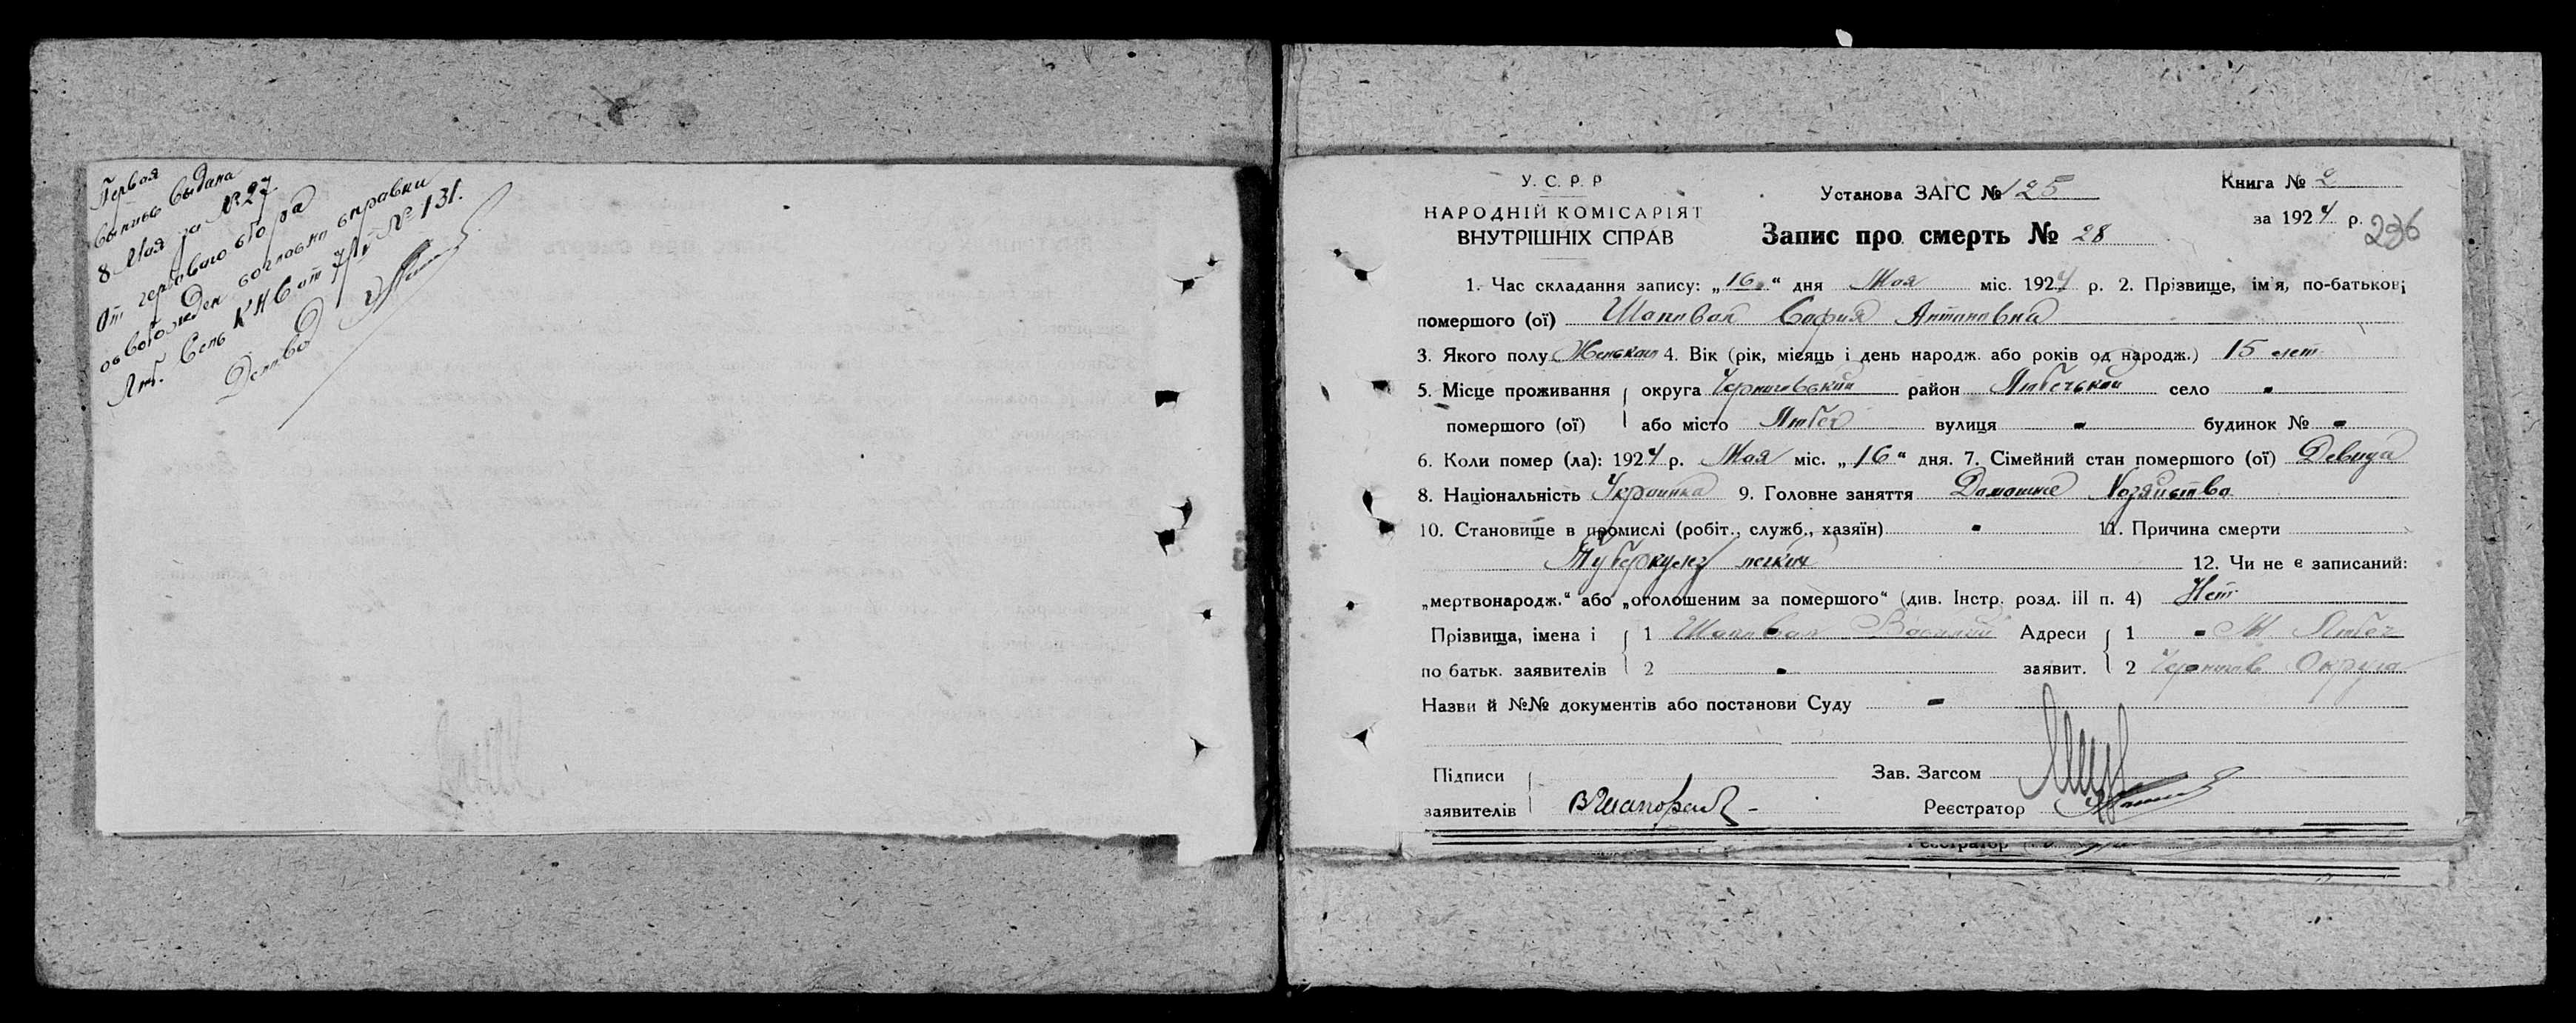 Первая
выпись выдана
8 Мая за № 27.
От гербового сбора
освобожден согласно справки
Люб. Сель К Н С от 7/V № 131.
Делопвод
У. С. Р. Р
НАРОДНІЙ КОМІСАРІЯТ
ВНУТРІШНІХ СПРАВ
Установа ЗАГС № 125
Книга № 2
за 1924 р.
236
Запис про смерть № 28
1. Час складання запису: „16" дня Мая міс. 1924 р. 2. Прізвище, ім'я, по-батькові
помершого (ої) Шаповал София Антоновна
3. Якого полу Женского 4. Вік (рік, місяць і день народж. або років од народж.) 15 лет
5. Місце проживання округа Черниговский район Любечький село -
помершого (ої) або місто Любеч вулиця - будинок № -
6. Коли помер (ла): 1924 р. Мая міс. „16" дня. 7. Сімейний стан помершого (ої) Девица
8. Національність Украинка 9. Головне заняття Домашнее Хозяйство
10. Становище в промислі (робіт., служб., хазяїн) - 11. Причина смерти
Туберкулез легких 12. Чи не є записаний:
„мертвонародж." або „оголошеним за помершого" (див. Інстр. розд. III п. 4) Нет
Прізвища, імена і 1 Шаповал Василий Адреси 1 - М. Любеч
по батьк. заявителів 2 - заявит. 2 Чернигов Округа
Назви й №№ документів або постанови Суду -
Підписи Зав. Загсом
заявителів ВШаповал Реєстратор
Реєстратор